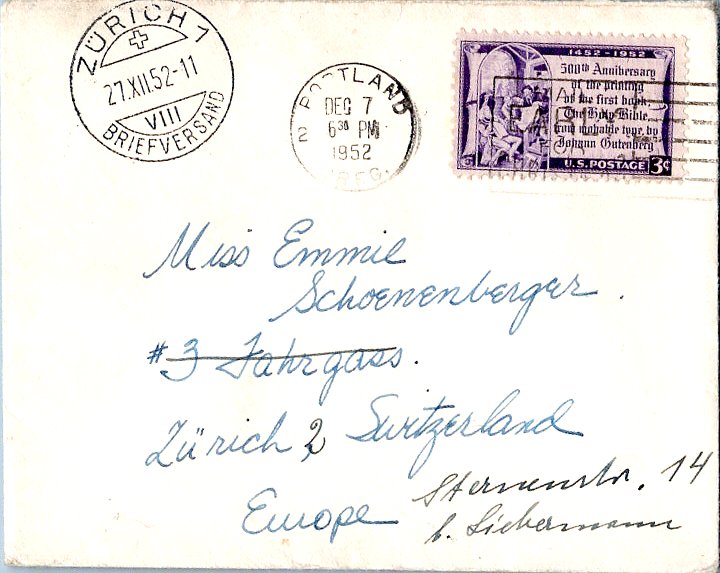 ZÜRICH 1
27.XII.52-11
VIII
BRIEFVERSAND
PORTLAND
DEC 7
6 30 PM
1952
2
OREG.
1452-1952
500th Anniversary
of the printing
of the first book,
The Holy Bible,
from movable type, by
Johann Gutenberg
U.S. POSTAGE 3¢
Miss Emmie
Schoenenberger.
#3 Fahrgass.
Zürich 2, Switzerland
Europe
Sternenstr. 14
b. Liebermann